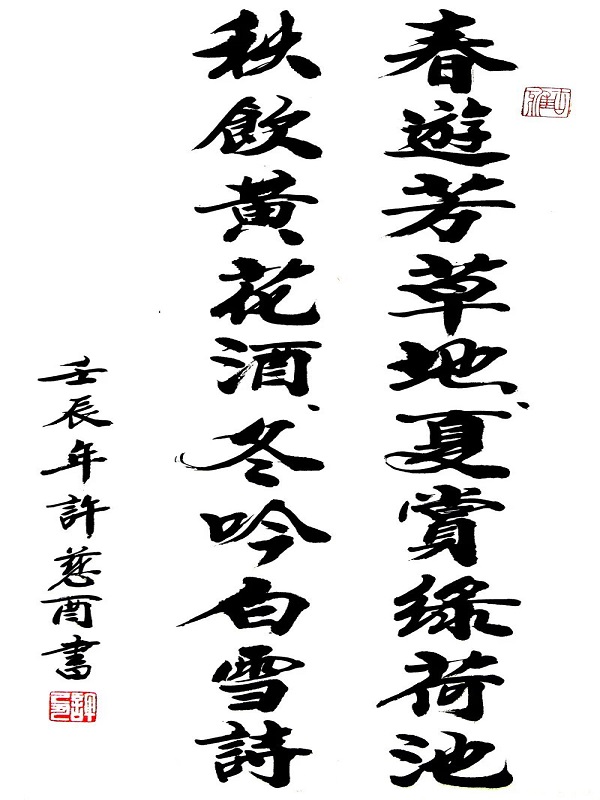 春遊芳草地、夏賞緑荷池
秋飲黄花酒、冬吟白雪詩
壬辰年許慈酉書